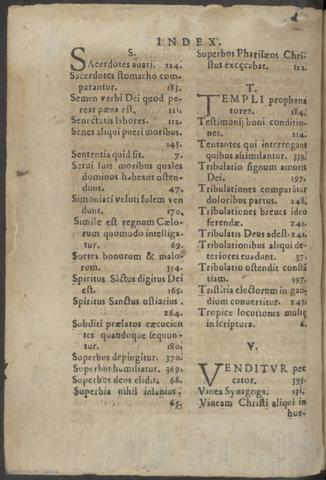 INDEX.
S.
SAcerdotes auari. 124.
Sacerdotes stomacho com-
parantur. 183.
Semen verbi Dei quod pe-
reat pæna est. 121.
Senectutis labores. 112.
Senes aliqui pueri moribus.
145.
Sententia quid sit. 7.
Serui suis moribus quales
dominos habeant osten-
dunt. 47.
Simoniaci veluti solem ven
dunt. 170.
Simile est regnum Cælo-
rum quomodo intelliga-
tur. 69.
Sortes bonorum & malo-
rum. 354.
Spiritus Sãctus digitus Dei
est. 165.
Spiritus Sanctus ostiarius.
264.
Subditi prælatos cæcucien
tes quandoque sequun-
tur. 180.
Superbus depingitur. 370.
Superbus humiliatur. 369.
Superbus deos elidit. 68.
Superbia nihil
65.
Superbos Pharisæos Chri-
stus excęcabat. 122.
T.
TEMPLI prophana
tores. 184.
Testimonij boni conditio-
nes. 114.
Tentantes qui interrogant
quibus assimilantur. 339.
Tribulatio signum amoris
Dei. 197.
Tribulationes comparãtur
doloribus partus. 248.
Tribulationes breues ideo
ferendæ. 241.
Tribulatis Deus adest. 242.
Tribulationibus aliqui de-
teriores euadunt. 37.
Tribulatio ostendit constã
tiam. 197.
Tristitia electorum in gau
dium conuertitur. 245.
Tropicæ locutiones multę
in scriptura. 6.
V.
VENDITVR pec
cator. 395.
Vinea Synagoga. 131.
Vineam Christi aliqui in
hor-